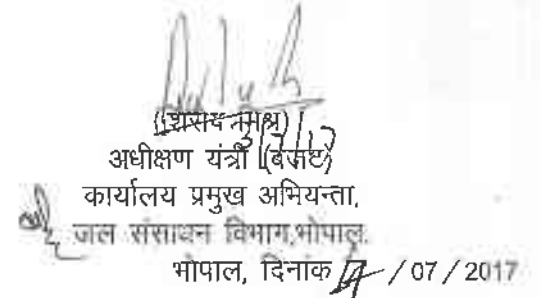 अधीक्षण यंत्री (बजट)
कार्यालय प्रमुख अभियन्ता,
जल संसाधन विभाग,भोपाल.
भोपाल, दिनांक / 07 / 2017